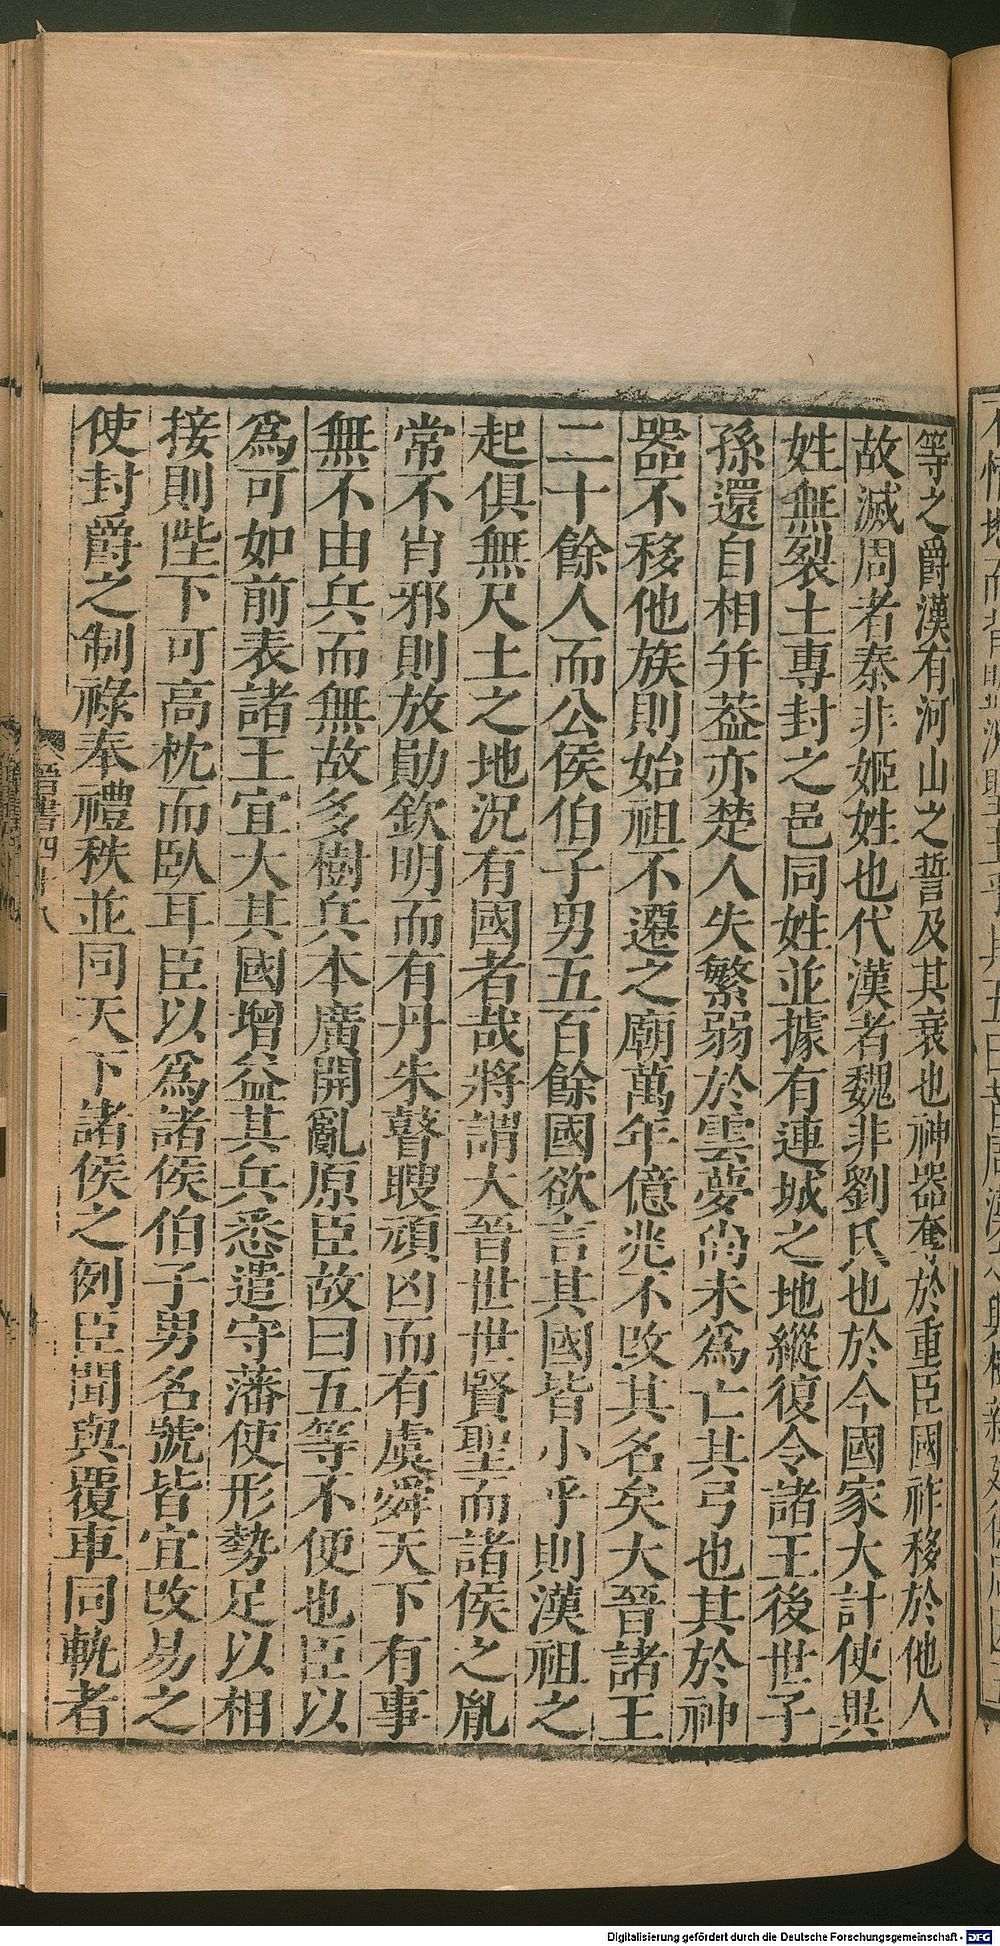 等之爵漢有河山之誓及其衰也神器奪於重臣國祚移於他人
故滅周者秦非姬姓也代漢者魏非劉氏也於今國家大計使異
姓無裂土專封之邑同姓並據有連城之地縱復令諸王後世子
孫還自相并葢亦楚人失繁弱於雲夢尚未爲亡其弓也其於神
器不移他族則始祖不遷之廟萬年億兆不改其名矣大晉諸王
二十餘人而公侯伯子男五百餘國欲言其國皆小乎則漢祖之
起俱無尺土之地況有國者哉將謂大晉世世賢聖而諸侯之胤
常不肖邪則放勛欽明而有丹朱瞽瞍頑凶而有虞舜天下有事
無不由兵而無故多樹兵本廣開亂原臣故曰五等不便也臣以
爲可如前表諸王宜大其國增益其兵悉遣守藩使形勢足以相
接則陛下可高枕而臥耳臣以爲諸侯伯子男名號皆宜改易之
使封爵之制祿奉禮秩並同天下諸侯之例臣聞與覆車同軌者
晉書四十八
Digitalisierung gefördert durch die Deutsche Forschungsgemeinschaft - DFG